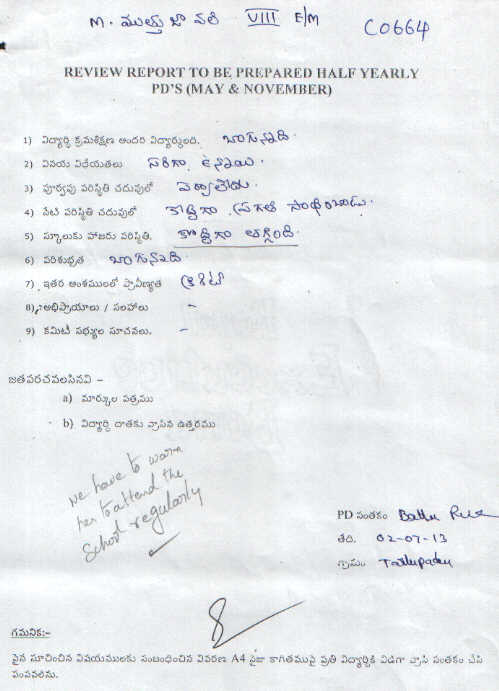 M. ముత్తు జా వలి VIII E/M
C0664
REVIEW REPORT TO BE PREPARED HALF YEARLY
PD'S (MAY & NOVEMBER)
1) విద్యార్ధి క్రమశిక్షణ అందరి విద్యార్ధులది. బాగున్నది.
2) వినయ విధేయతలు సరిగా ఉన్నాయి.
3) పూర్వపు పరిస్థితి చదువులో
4) నేటి పరిస్థితి చదువులో కొద్దిగా ప్రగతి సాధించాడు.
5) స్కూలుకు హాజరు పరిస్థితి. కొద్దిగా తగ్గింది.
6) పరిశుభ్రత బాగున్నది.
7) ఇతర అంశములలో ప్రావీణ్యత క్రికెట్
8) అభిప్రాయాలు / సలహాలు -
9) కమిటీ సభ్యుల సూచనలు. -
జతపరచవలసినవి –
a) మార్కుల పత్రము
b) విద్యార్ధి దాతకు వ్రాసిన ఉత్తరము
we have to warn
her to attend the
School regularly
PD సంతకం
తేది. 02-07-13
గ్రామం
గమనిక:-
పైన సూచించిన విషయములకు సంబంధించిన వివరణ A4 సైజు కాగితముపై ప్రతి విద్యార్ధికి విడిగా వ్రాసి సంతకం చేసి
పంపవలెను.